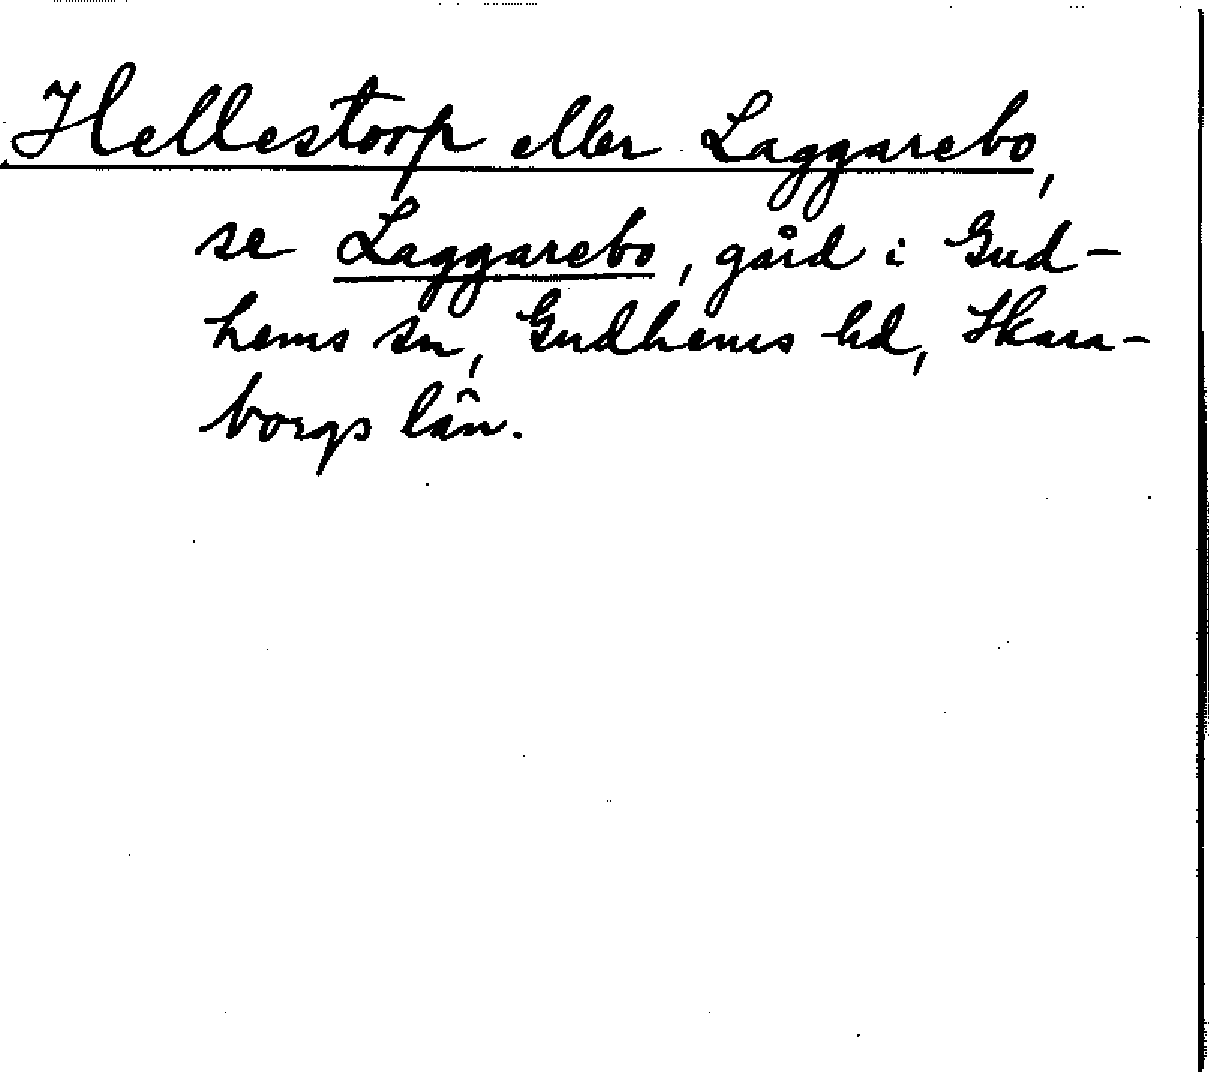 Hellestorp eller Laggarebo,
se Laggarebo, gård i Gud-
hems sn, Gudhems hd, Skara-
borgs län.